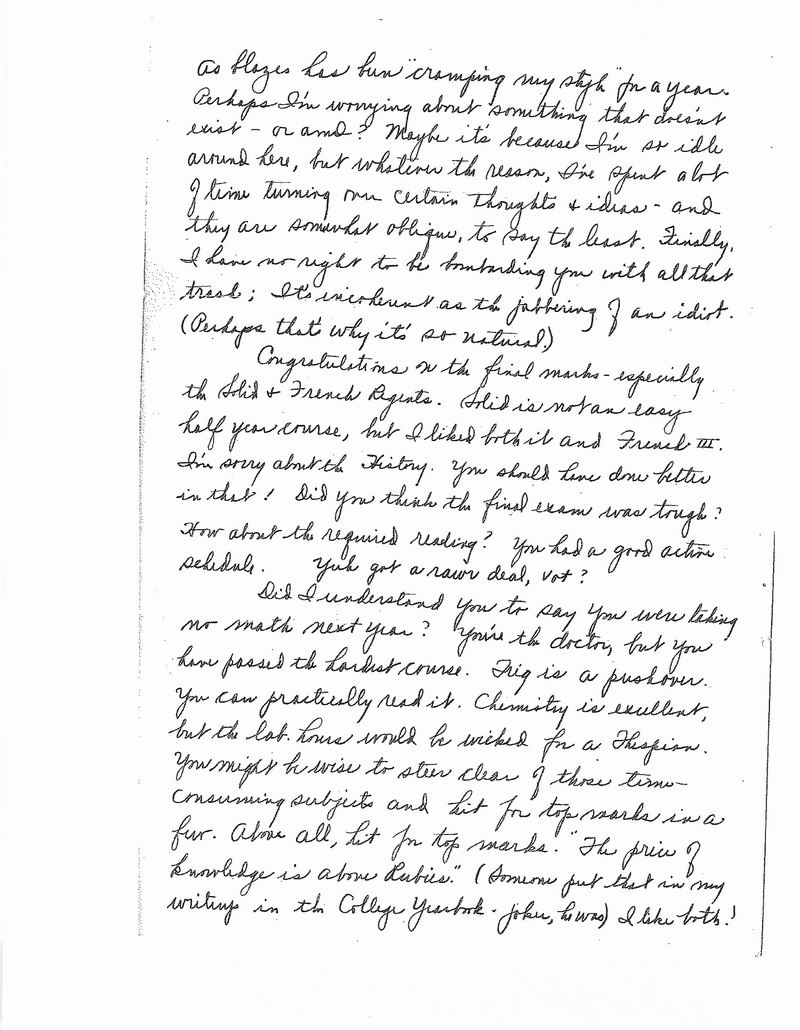 as blazes has been "cramping my style" for a year.
Perhaps I'm worrying about something that doesn't
exist - or am I? Maybe it's because I'm so idle
around here, but whatever the reason, I've spent a lot
of time turning over certain thoughts & ideas - and
they are somewhat oblique, to say the least. Finally,
I have no right to be bombarding you with all that
trash; It's incoherent as the jabbering of an idiot.
(Perhaps that's why it's so natural.)
Congratulations on the final marks - especially
the Solid & French Regents. Solid is not an easy
half year course, but I liked both it and French III.
I'm sorry about the History. You should have done better
in that! Did you think the final exam was tough?
How about the required reading? You had a good active
schedule. Yuh got a raw deal, vot?
Did I understand you to say you were taking
no math next year? You're the doctor, but you
have passed the hardest course. Trig is a pushover.
You can practically read it. Chemistry is excellent,
but the lab. hours would be wicked for a Thespian.
You might be wise to steer clear of those time-
consuming subjects and hit for top marks in a
few. Above all, hit for top marks. "The price of
knowledge is above Rubies." (Someone put that in my
writeup in the College Yearbook - joker, he was) I like both!